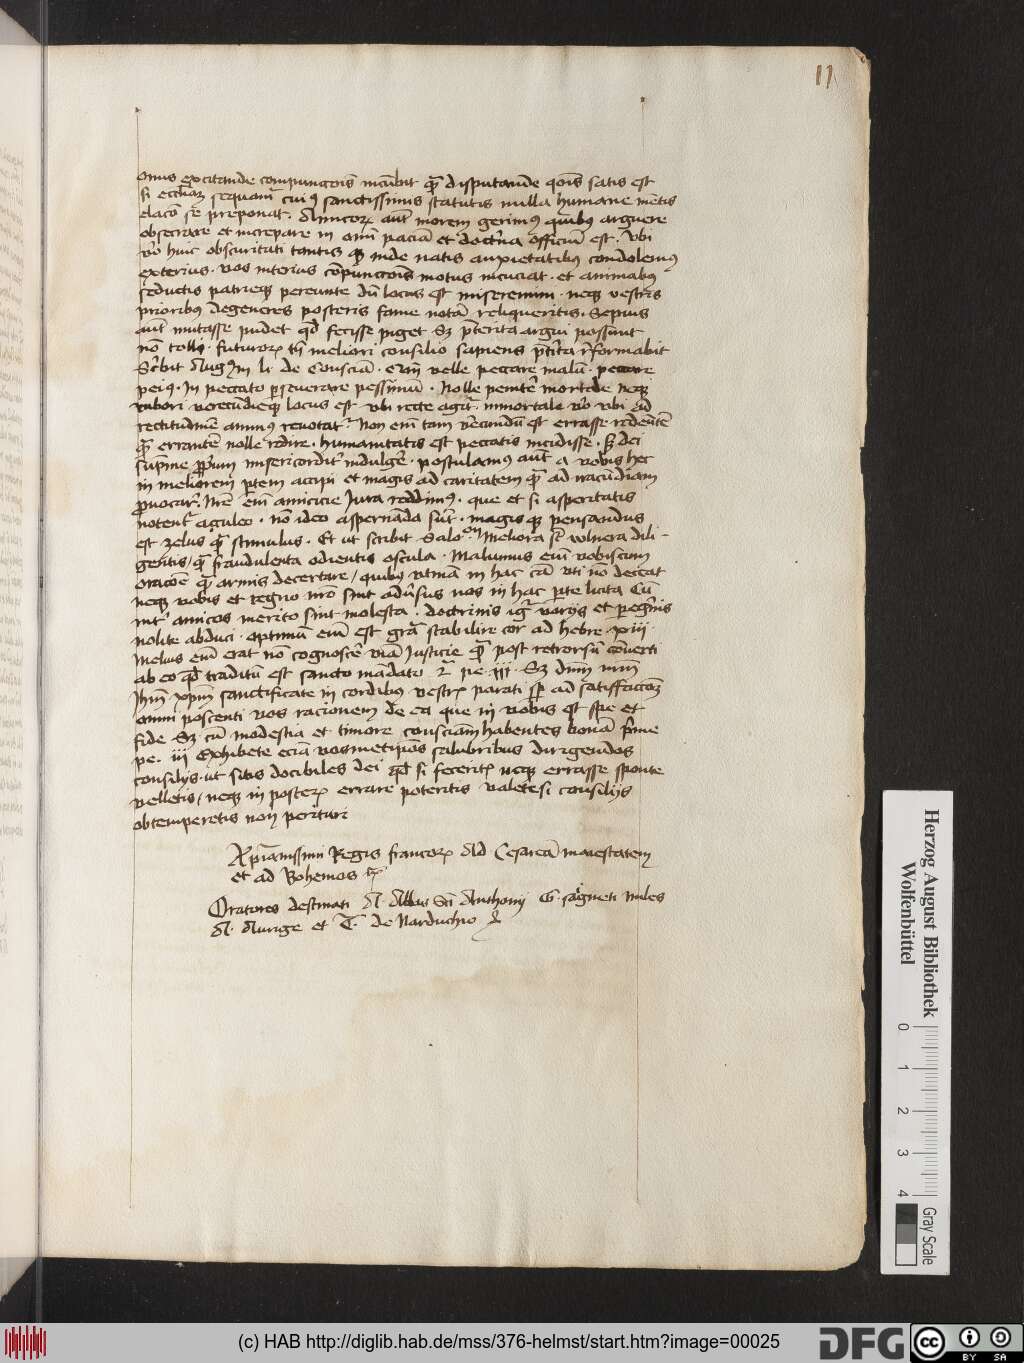 11
onus excitande compunctōis incūbit qȝ disputande qōis satis est
si eccliaȝ sequamᷣ cuiꝰ sanctissimis statutis nulla humane mētis
elacō se preponat. Amicoꝝ aūt morem gerimꝰ quibꝰ arguere
obsecrare et increpare in omī paciā et doctᷣna officiū est. Vbi
vo huic obscuritati tantis inde natis anxietatibꝰ condolemꝰ
exterius. vos interius cōpunctōis motus incuciat. et animabꝰ
seductis patrieqȝ pereunte dū locus est miseremini. neqȝ vestris
prioribꝰ degeneres posteris fame notā relinqueritis. Sepius
aūt mutasse pudet qd fecisse piget Sȝ pᷣterita argui possunt
nō tolli. futuroꝝ tn̄ meliori consilio sapiens pᷣtita rᷣformabit
Scribit Augꝰ in li. de consciā. velle peccare malū. peccare
peiꝰ. In peccato pseuerare pessimū. Nolle penitē mortale neqȝ
rubori verecūdieqȝ locus est vbi recte agitᷣ. immortale vo vbi ad
rectitudinē animꝰ reuocatᷣ Non em̄ tam vecundū est errasse redeūtē
qȝ errantē nolle redire. humanitatis est peccatis incidisse. sȝ dei
sūpme ppriū misericorditᷣ indulgē. postulamꝰ aūt a vobis hec
in meliorem ptem accipi et magis ad caritatem qȝ ad iracūdiam
puocarᷣ. Nrē em̄ amicicie Jura reddimꝰ. que et si asperitatis
notentᷣ aculeo. nō ideo aspernāda sūt. magisqȝ pensandus
est zelus qȝ stimulus. Et ut scribit Saloᵒⁿ. Meliora st vulnera dili-
gentis/ qȝ fraudulenta odientis oscula. Malumus em̄ vobiscum
oracōe qȝ armis decertare/ quibꝰ vtinā in hac cā vti nō deceat
neqȝ vobis et regno nro sint aduersus nos in hac pte licita Cū
intᷣ amicos merito sint molesta. doctrinis igᷣ varijs et pegᷣnis
nolite abduci. optimū em̄ est grā stabilire cor ad hebre. xiij.
Melius em̄ erat nō cognoscē viā Justicie qȝ post retrorsū cōuerti
ab eo qd traditū est sancto mādato 2ᵃ pe. iij. Sȝ dnm nrm̄
Jhm̄ xpm̄ sanctificate in cordibꝰ vestrꝭ parati sp ad satisfaccōȝ
omni poscenti vos racionem de ea que in vobis est spe et
fide Sȝ cū modestia et timore consciam habentes bonā pᷣme
pe. iij Exhibete eciā vosmetipōs salubribus dirigendos
consilijs. ut sitis docibiles dei qd si feceritꝭ neqȝ errasse sponte
velletis/ neqȝ in posteꝝ errare poteritis valete si consilijs
obtemperetis non perituri
Xpianissimi Regis francoꝝ Ad Cesareā maiestatem
et ad Bohemos
Oratores destinati A. Abbas Sci Anthonij G. sagneti miles
A. Aurige et T. de Narduchio
Herzog August Bibliothek
Wolfenbüttel
0 1 2 3 4
Gray Scale
(c) HAB http://diglib.hab.de/mss/376-helmst/start.htm?image=00025
DFG
cc BY SA